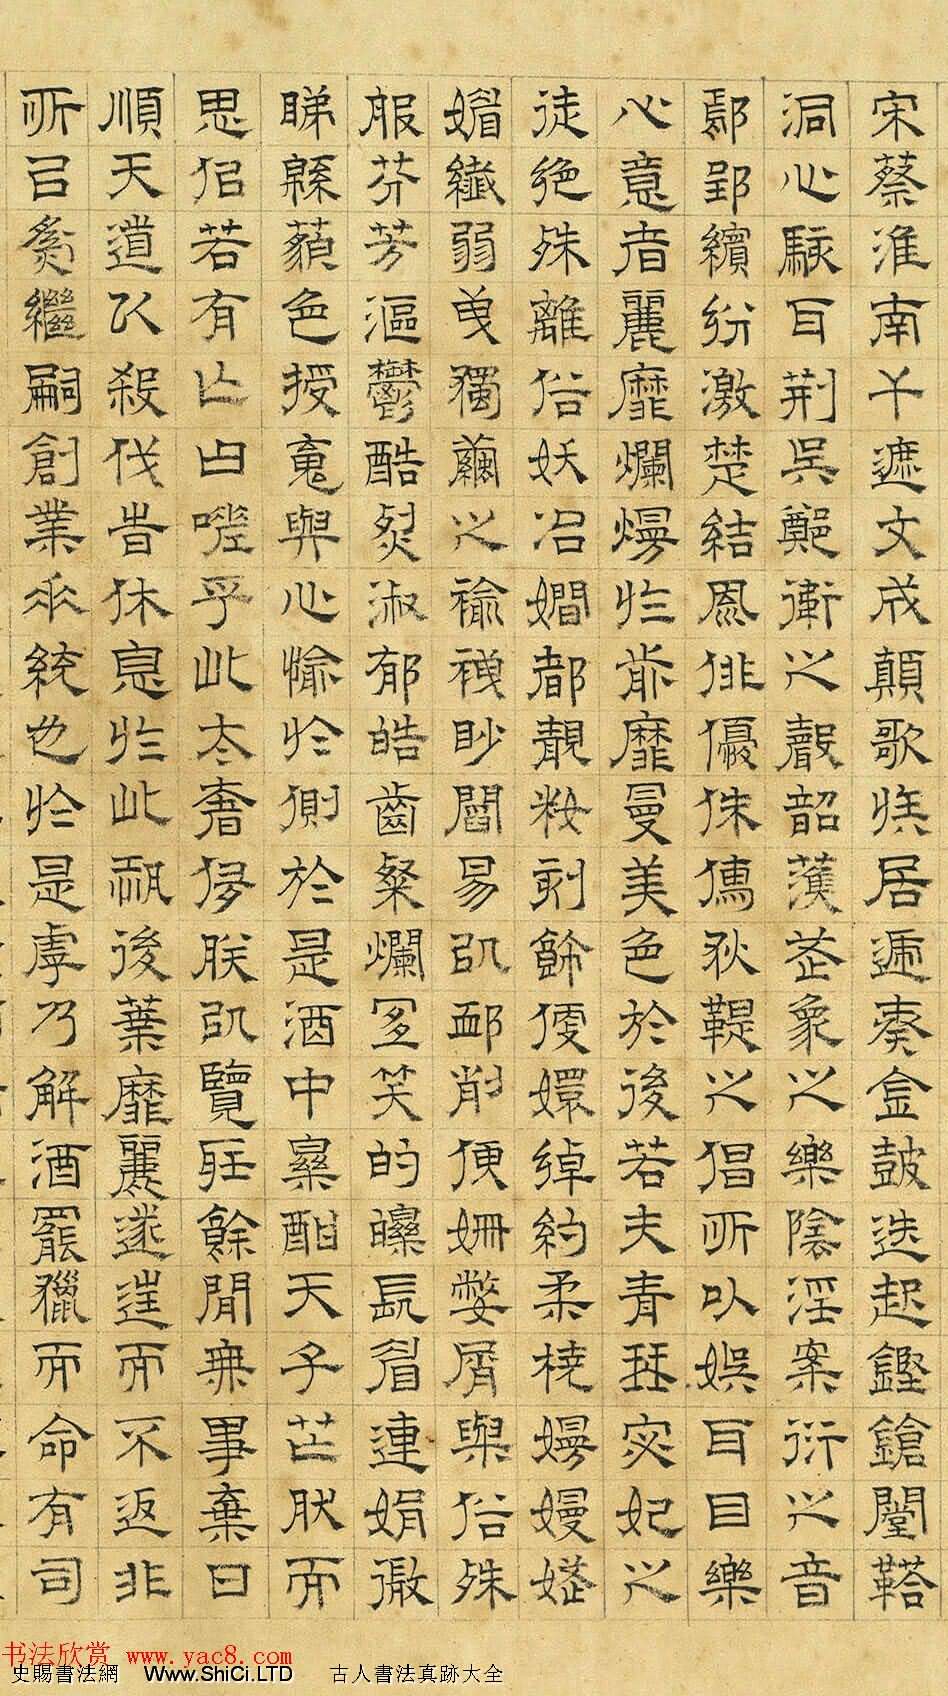 宋蔡淮南干遮文成顛歌族居遞奏金鼓迭起鏗鎗闛鞈
洞心駭耳荊吳鄭衛之聲韶濩武象之樂陰淫案衍之音
鄢郢繽紛激楚結風俳優侏儒狄鞮之倡所以娛耳目樂
心意者麗靡爛熳於前靡曼美色於後若夫青琴宓妃之
徒絕殊離俗妖冶嫺都靚糚刻飾便嬛綽約柔橈嫚嫚嫵
媚纖弱曳獨繭之褕袣眇閻易以卹削便姍嫳屑與俗殊
服芬芳漚鬱酷烈淑郁皓齒粲爛宜笑的皪長眉連娟微
睇緜藐色授魂與心愉於側於是酒中樂酣天子芒然而
思佀若有亡曰嗟乎此太奢侈朕以覽聽餘閒無事棄日
順天道以殺伐時休息於此恐後葉靡麗遂往而不返非
所以為繼嗣創業垂統也於是虖乃解酒罷獵而命有司
书法欣赏 www.yac8.com
史賜書法網 Www.ShiCi.LTD 古人書法真跡大全